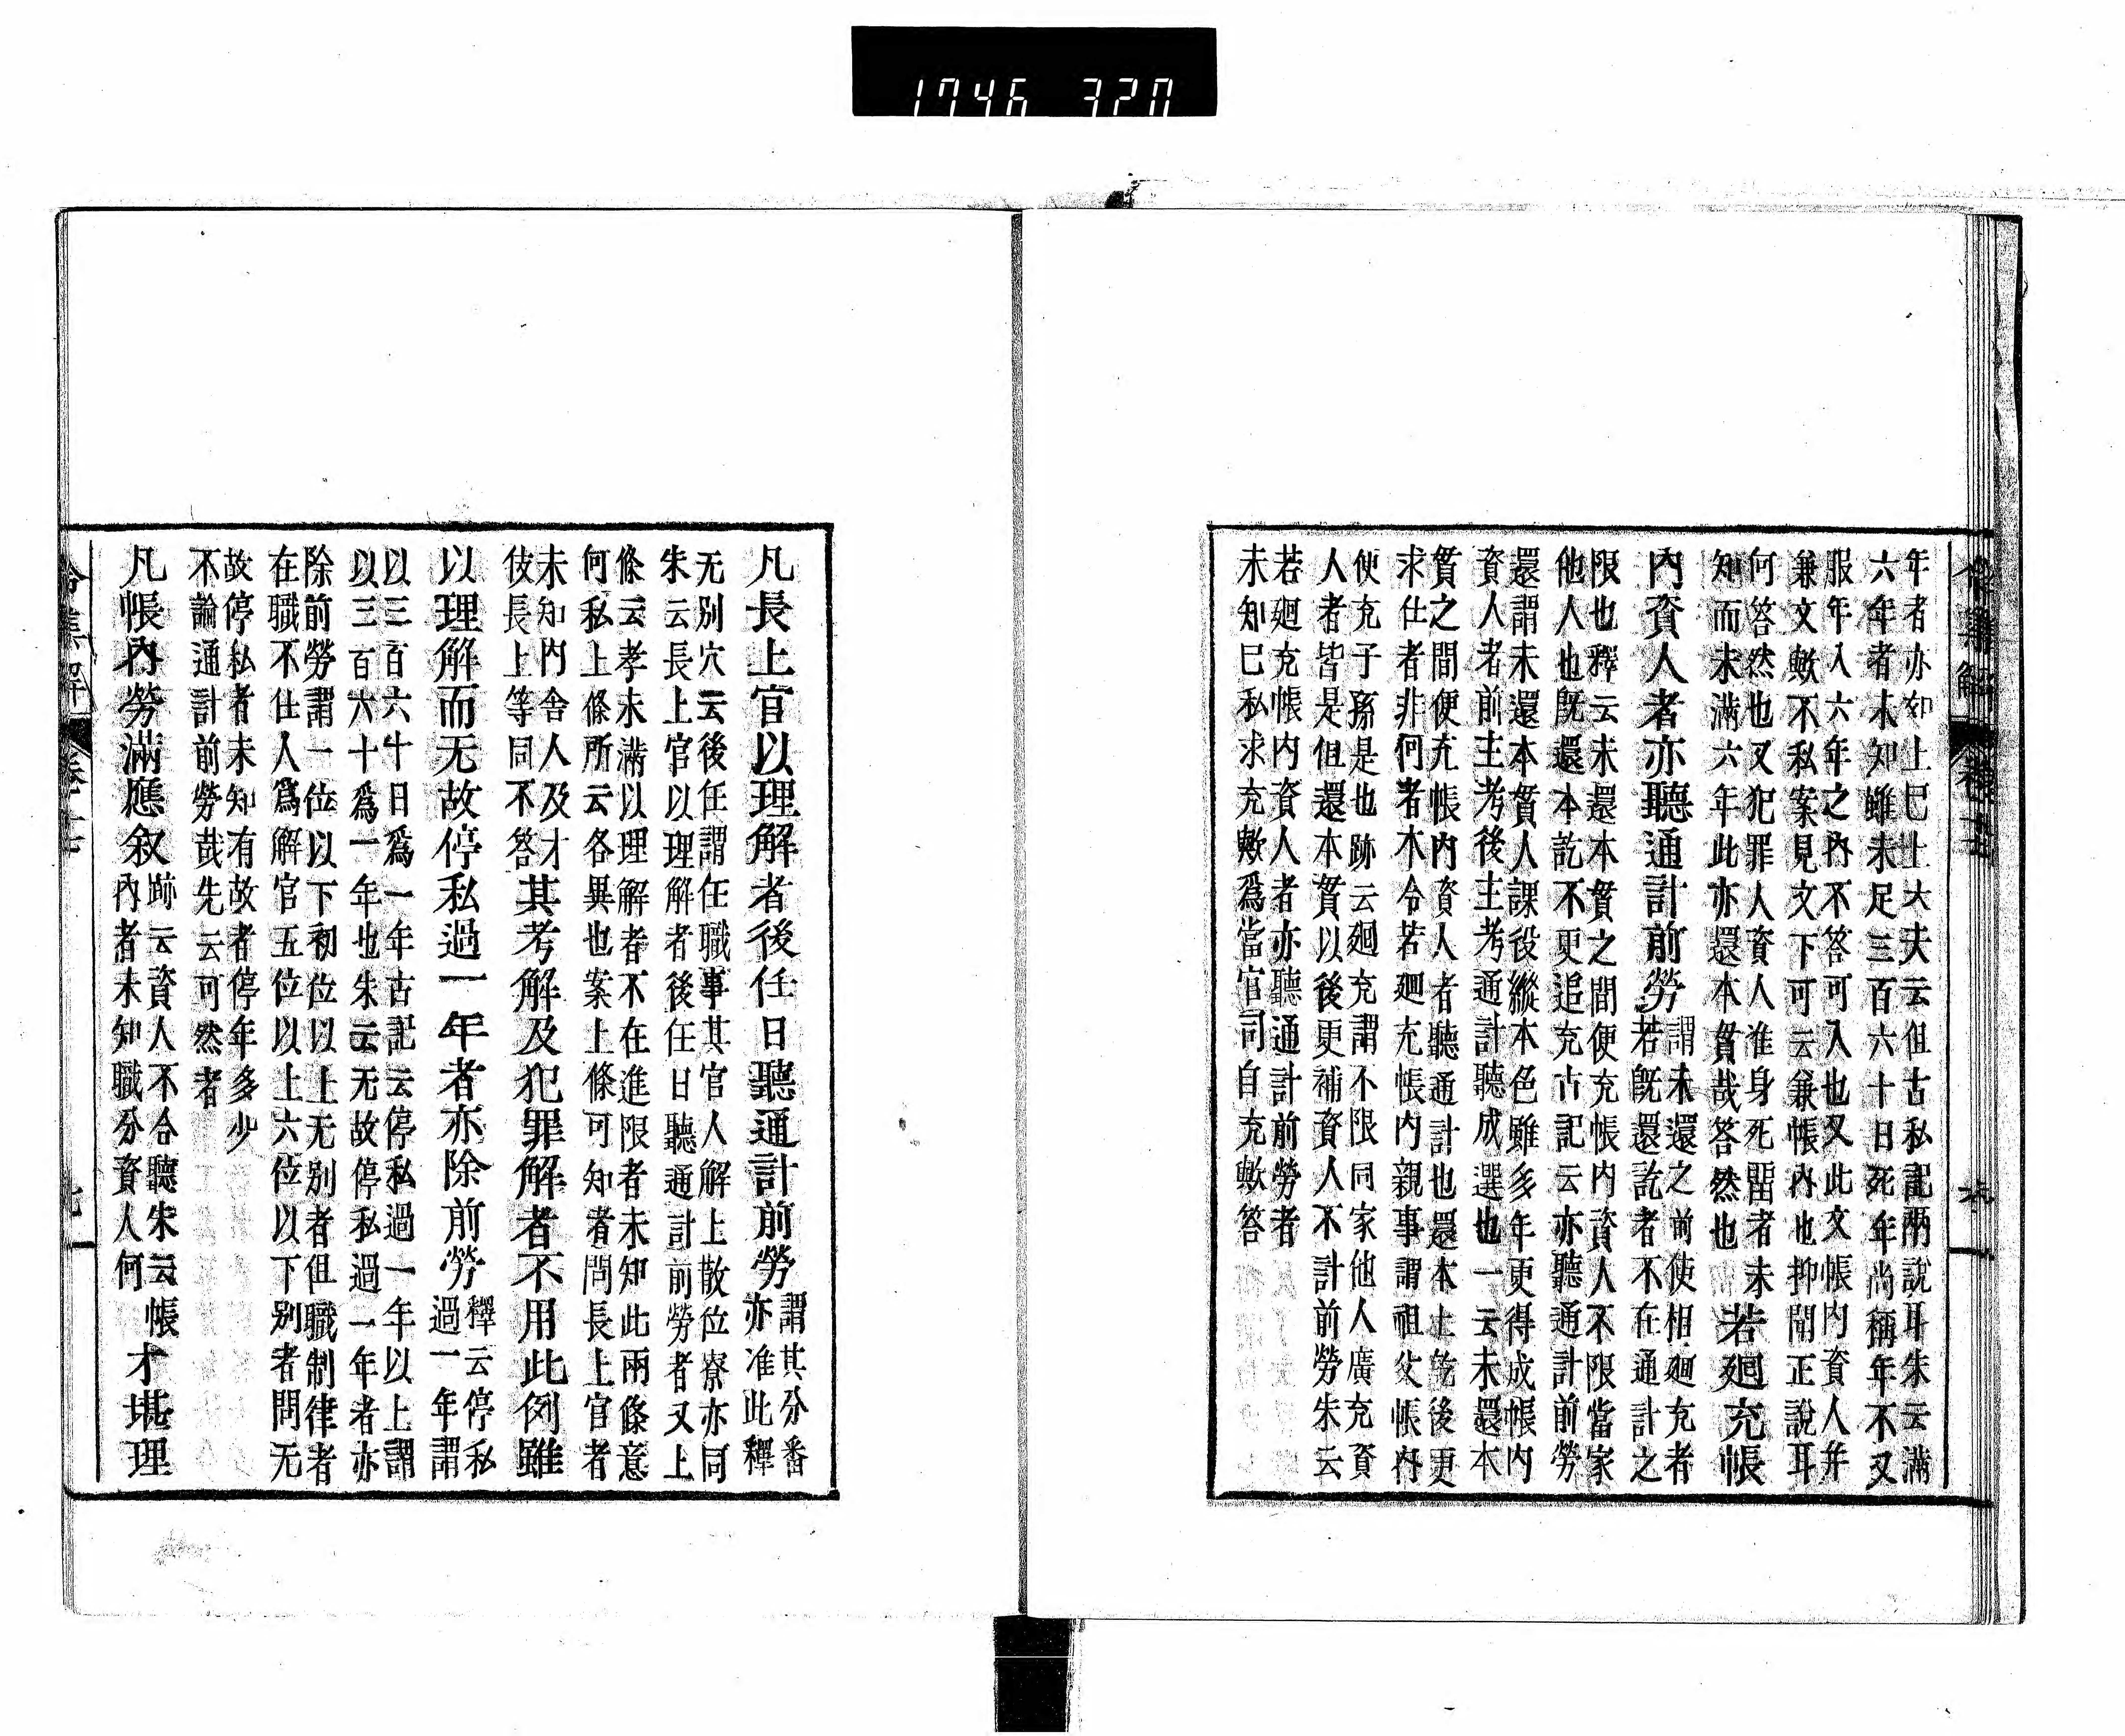 1746 320
年者亦如上巳上大夫云但古私記兩說耳朱云滿
六年者未知雖未足三百六十日死年尚稱年不又
服年入六年之內不答可入也又此文帳內資人并
兼文歟不私案見文下可云兼帳內也抑聞正說耳
何答然也又犯罪人資人准身死留者未
知而未滿六年此亦還本貫哉答然也
若廻充帳
內資人者亦聽通計前勞
謂未還之前使相廻充者
若既還訖者不在通計之
限也釋云未還本貫之間便充帳内資人不限當家
他人也既還本訖不更追充古記云亦聽通計前勞
還謂未還本貫人課役縱本色雖多年更得成帳內
資人者前主考後主考通計聽成選也一云未還本
貫之間便充帳內資人者聽通計也還本土訖後更
求仕者非何者不令若廻充帳內親事謂祖父帳內
便充子孫是也跡云廻充謂不限同家他人廣充資
人者皆是但還本貫以後更補資人不計前勞朱云
若廻充帳内資人者亦聽通計前勞者
未知巳私求充歟爲當官司自充歟答
凡長上官以理解者後任日聽通計前勞
謂其分番
亦准此釋
无別穴云後任謂任職事其官人解上散位寮亦同
朱云長上官以理解者後任日聽通計前勞者又上
條云考未滿以理解者不在進限者未知此兩條意
何私上條所云各異也案上條可知者問長上官者
未知内舍人及才
伎長上等同不答
其考解及犯罪解者不用此例雖
以理解而无故停私過一年者亦除前勞
釋云停私
過一年謂
以三百六十日爲一年古記云停私過一年以上謂
以三百六十爲一年也朱云无故停私過一年者亦
除前勞謂一位以下初位以上无别者但職制律者
在職不仕人爲解官五位以上六位以下别者問无
故停私者未知有故者停年多少
不論通計前勞哉先云可然者
凡帳內勞滿應叙
跡云資人不合聽朱云帳
內者未知職分資人何
才堪理